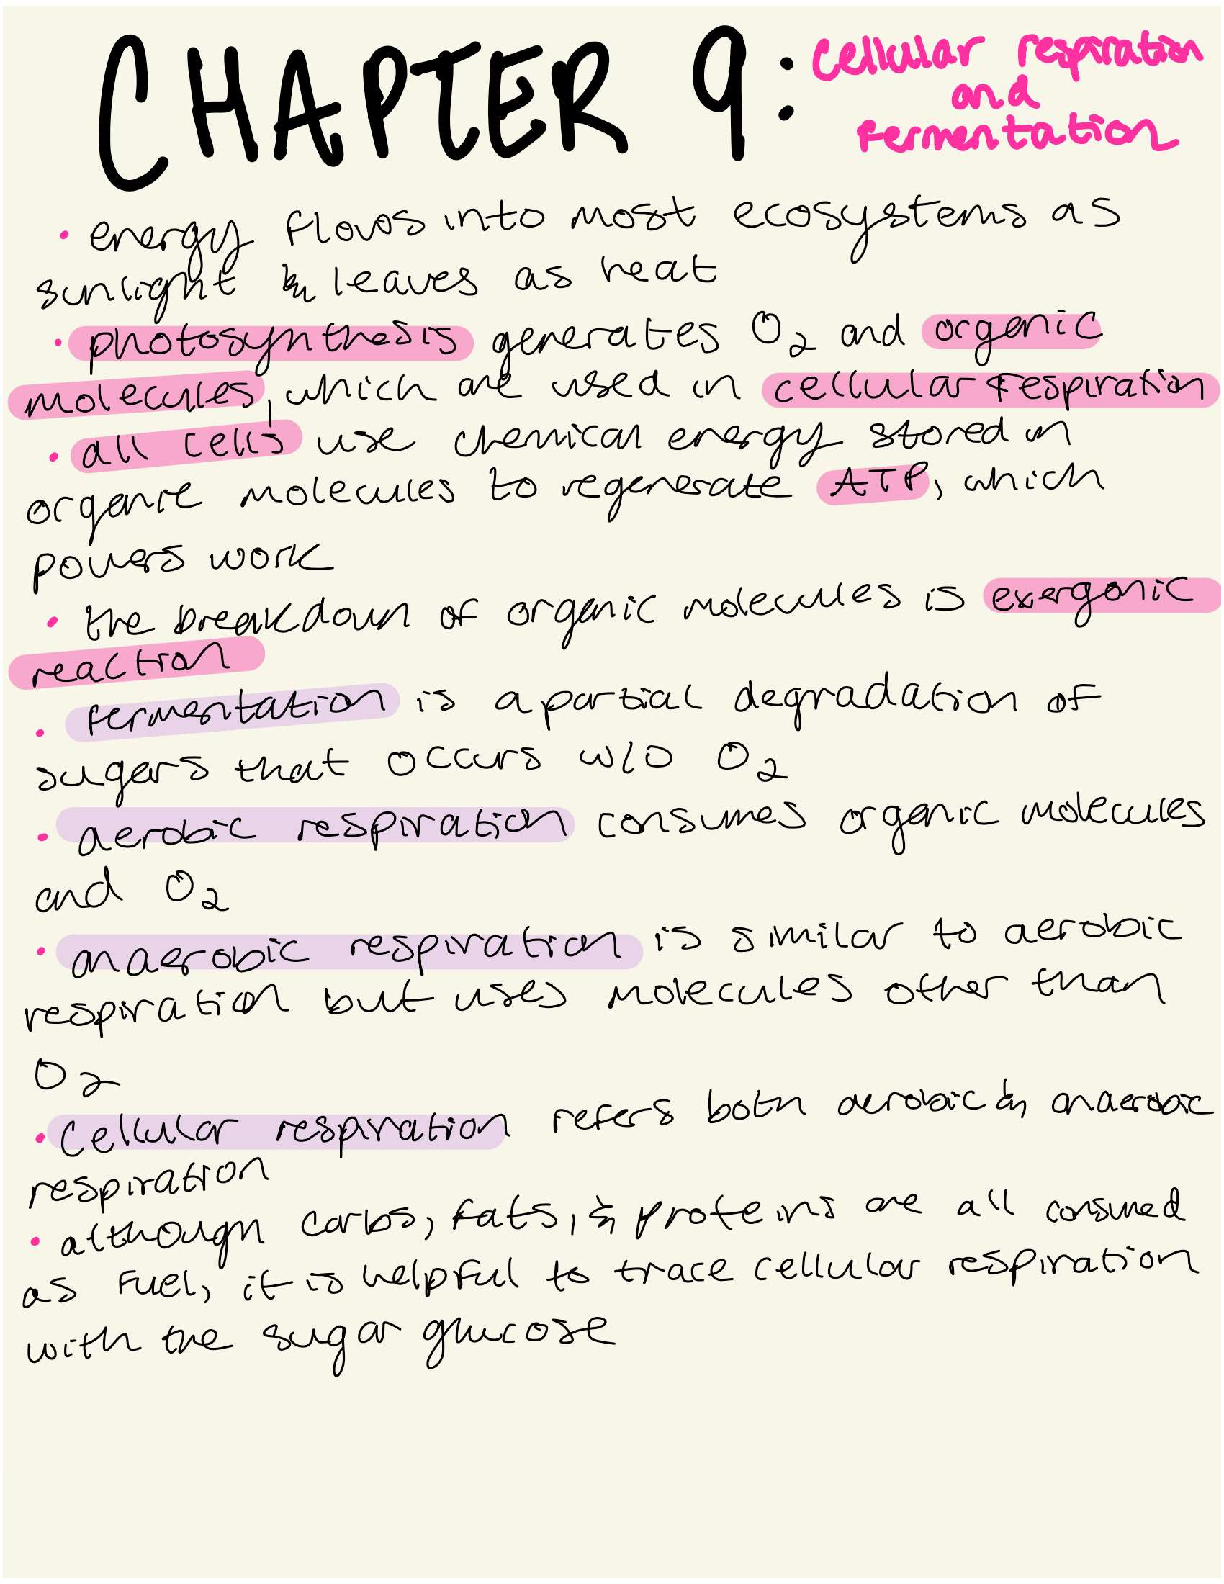 CHAPTER 9: cellular respiration
and
fermentation
• energy flows into most ecosystems as
sunlight & leaves as heat
• photosynthesis generates O₂ and organic
molecules, which are used in cellular respiration
• all cells use chemical energy stored in
organic molecules to regenerate ATP, which
powers work
• the breakdown of organic molecules is exergonic
reaction
• fermentation is a partial degradation of
sugars that occurs w/o O₂
• aerobic respiration consumes organic molecules
and O₂
• anaerobic respiration is similar to aerobic
respiration but uses molecules other than
O₂
• cellular respiration refers both aerobic & anaerobic
respiration
• although carbs, fats, & proteins are all consumed
as fuel, it is helpful to trace cellular respiration
with the sugar glucose